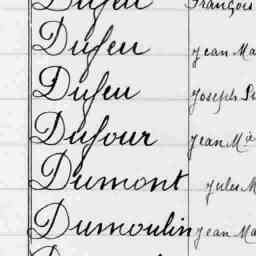 Dufeu François
Dufeu Jean Ma
Dufeu Joseph
Dufour Jean Mie
Dumont Jules M
Dumoulin Jean Ma